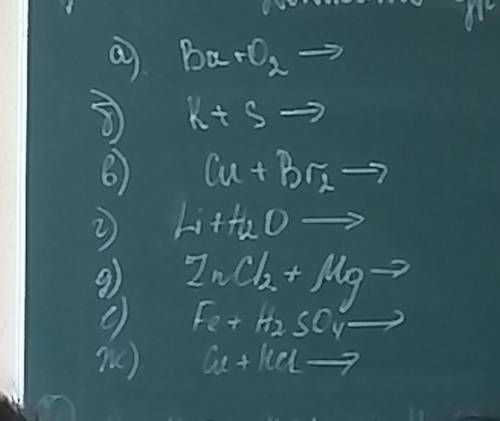 а) Ba + O₂ →
б) K + S →
в) Cu + Br₂ →
г) Li + H₂O →
д) ZnCl₂ + Mg →
е) Fe + H₂SO₄ →
ж) Cu + HCl →